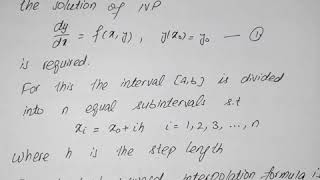 the solution of IVP
dy/dx = f(x, y), y(x₀) = y₀ — ①
is required.
For this the interval [a,b] is divided
into n equal subintervals s.t
xᵢ = x₀ + ih i = 1, 2, 3, ..., n
where h is the step length
interpolation formula is